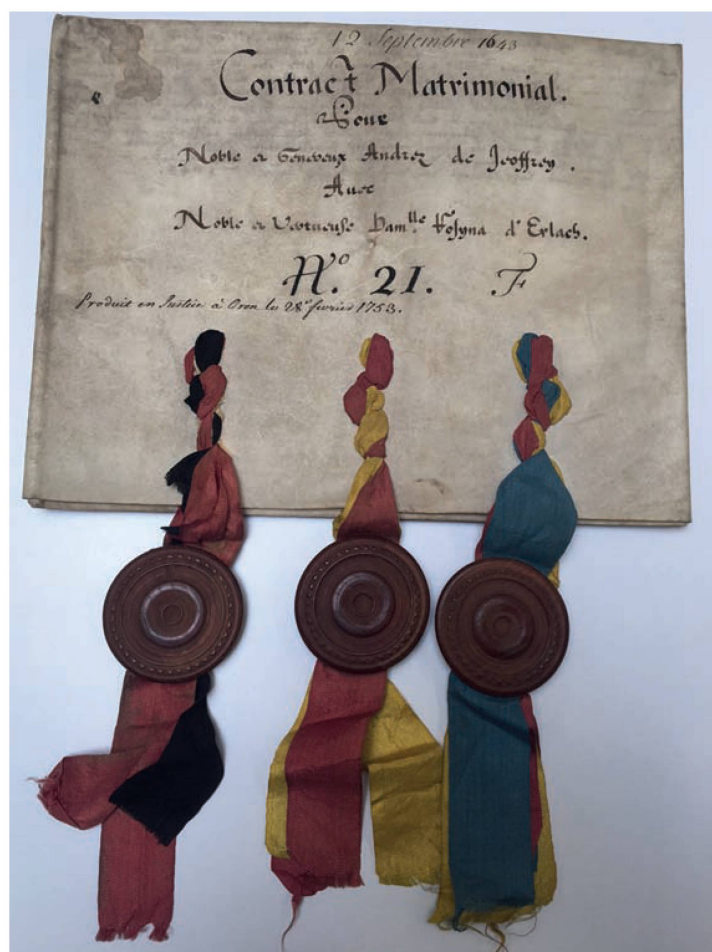 12 Septembre 1643
Contract Matrimonial.
Pour
Noble et Genereux Andrez de Jeoffrey.
Avec
Noble et Vertueuse Dam.lle Rosyna d'Erlach.
N.o 21. F
Produit en Justice à Oron les 28.e fevrier 1753.